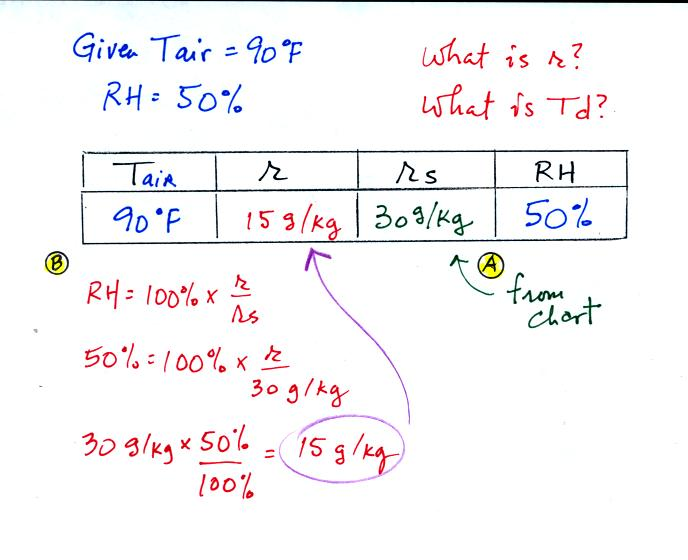 Given Tair = 90°F
RH = 50%
What is r?
What is Td?
TAIR r rs RH
90°F 15 g/kg 30 g/kg 50%
B
A
from
chart
RH = 100% x r
rs
50% = 100% x r
30 g/kg
30 g/kg x 50% = 15 g/kg
100%